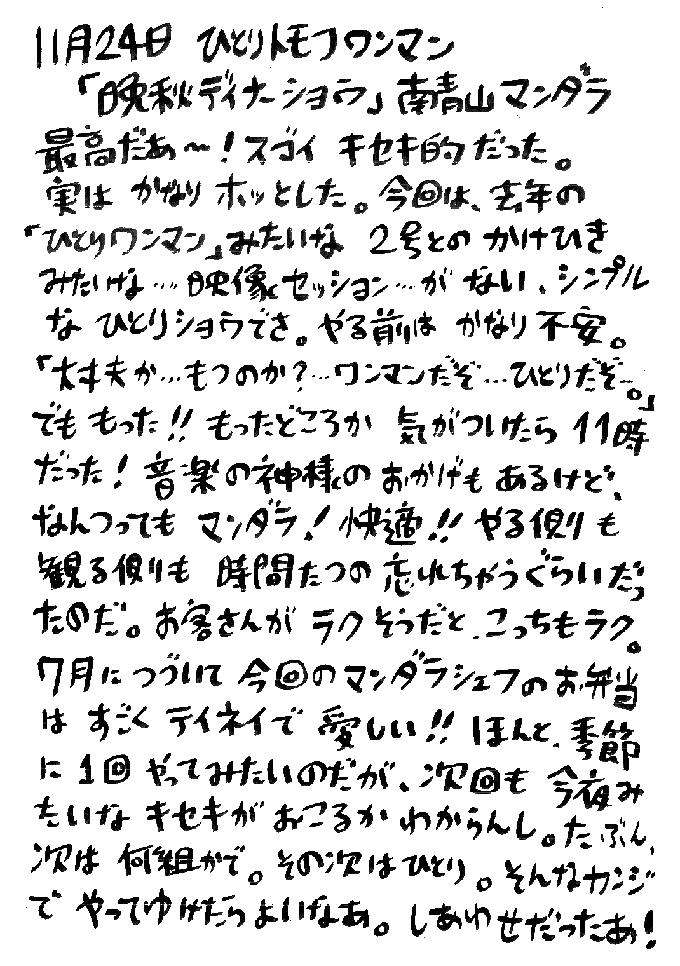 11月24日 ひとりトモフワンマン
「晩秋ディナーショウ」南青山マンダラ
最高だぁ〜!スゴイ キセキ的だった。
実は かなり ホッとした。今回は、去年の
「ひとりワンマン」みたいな 2号との かけひき
みたいな…映像セッション…が ない、シンプル
な ひとりショウでさ。やる前は かなり 不安。
「大丈夫か…もつのか?…ワンマンだぞ…ひとりだぞ…。」
でも もった!! もったどころか 気がついたら 11時
だった!音楽の神様の おかげも あるけど、
なんつっても マンダラ!快適!! やる側りも
観る側りも 時間たつの 忘れちゃうぐらいだっ
たのだ。お客さんが ラクそうだと、こっちもラク。
7月に つづいて 今回のマンダラシェフのお弁当
は すごく テイネイで 愛しい!! ほんと、季節
に 1回 やってみたいのだが、次回も 今夜み
たいな キセキが おこるか わからんし。たぶん、
次は 何組かで。その次は ひとり。そんなカンジ
で やってゆけたら よいなあ。しあわせだったあ!